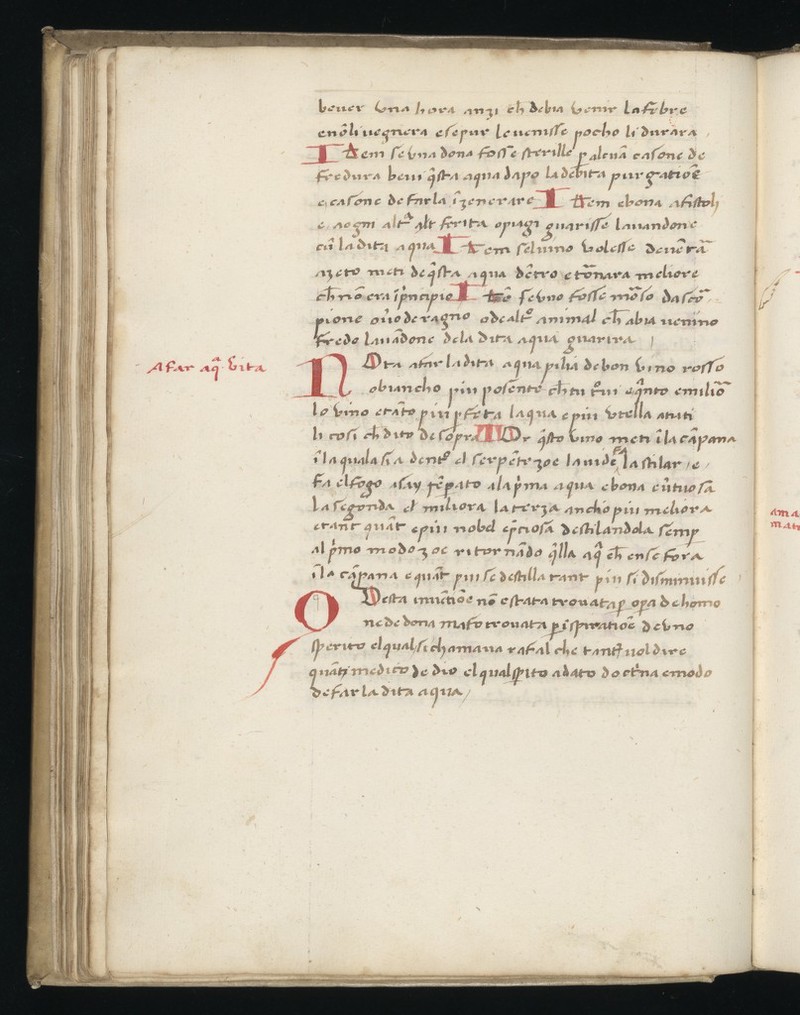 bever vna hora anzi ch̄ debia venir la febre
e nō li vegnera e se pur le venisse pocho li durara
Item se vna dona fosse sterille ꝑ alcuā casone de
fredura bevi q̄sta aqua dapo la debita purgatiōe
e casone de farla īzenerare Item e bona a fistoli
e a ogni altͣ alt̄ ferita o piagi guarisse lauandone
cū la dita aqua Item se lu vino volesse deuētrā
azeto meti de q̄sta aqua dētro e tōnara meliore
ch̄ nō era īpͥncipio Itē se vno fosse mōso da scor̄
pione ou̓o de ragno o de altͦ animal ch̄ abia uenino
fredo lauādone dela dita aqua guarira
A far aq̄ vita
NOta a far la dita aqua pilia de bon vino rosso
o biancho piu posente ch̄ tu t͂oui e q̄nto e miliō
lo vino e tāto piu ꝑfeta laqua e piu vtella a tuti
li cosi ch̄ dito de sopra Or q̄sto vino meti ī la cāpana
ī la quala sia dentͦ el serpēte zoe la uide fa la stilar e
fa el fogo asay tēꝑato a la pͥma aqua e bona e v̓tuosa
la segonda el miliora la terza ancho piu meliora
e tant̄ quāt e piu nobel e p̄ciosa destilandola semꝑ
al pͥmo modo zoe ritornādo q̄lla aq̄ ch̄ ense fora
ī la cāpana e quāt piu se destilla tant piu si disminuisse
QVesta inuētiōe nō e stata trouata ꝑ oꝑa de homo
ne de dona ma fo trouata ꝑ ispiratiōe de vno
sperito el qual si chamaua rafal che tant̄ vol dire
quāt medico de dio el qual sꝑito a dato doctͥna e modo
de far la dita aqua